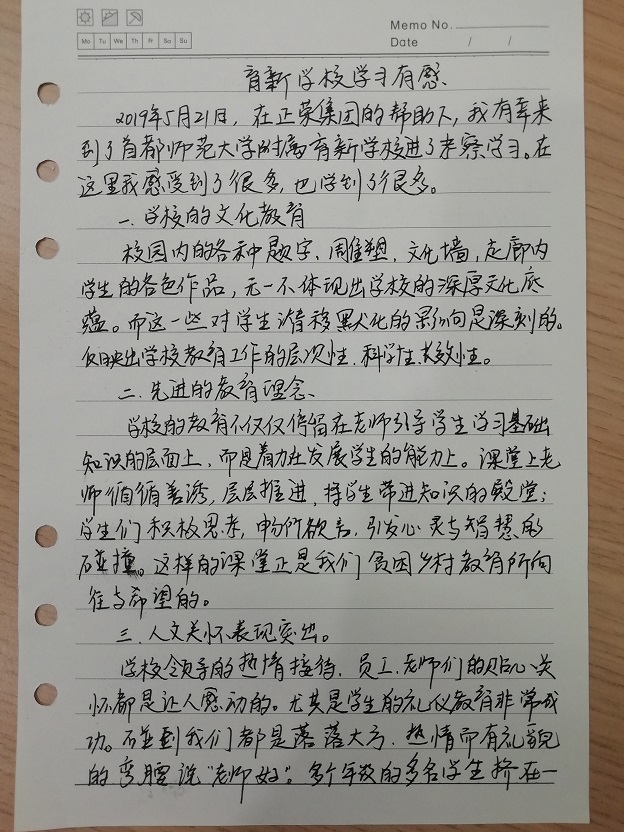 Memo No.
Mo Tu We Th Fr Sa Su
Date / /
育新学校学习有感
2019年5月21日，在正荣集团的帮助下，我有幸来
到了首都师范大学附属育新学校进了考察学习。在
这里我感受到了很多，也学到了很多。
一、学校的文化教育
校园内的各种题字、雕塑，文化墙，走廊内
学生的各色作品，无一不体现出学校的深厚文化底
蕴。而这一些对学生潜移默化的影响是深刻的。
反映出学校教育工作的层次性、科学性、长效性。
二、先进的教育理念、
学校的教育不仅仅停留在老师引导学生学习基础
知识的层面上，而是着力在发展学生的能力上。课堂上老
师循循善诱，层层推进，将学生带进知识的殿堂；
学生们积极思考，畅所欲言，引发心灵与智慧的
碰撞。这样的课堂正是我们贫困乡村教育所向
往与希望的。
三、人文关怀表现突出。
学校领导的热情接待、员工、老师们的贴心关
怀都是让人感动的。尤其是学生的礼仪教育非常成
功。碰到我们都是落落大方、热情而有礼貌
的弯腰说“老师好”。多个年级的多名学生挤在一